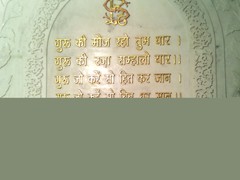 गुरू की मौज रहो तुम धार ।
गुरू की रज़ा सम्हालो यार ॥
गुरू जो करें सो हित कर जान ।